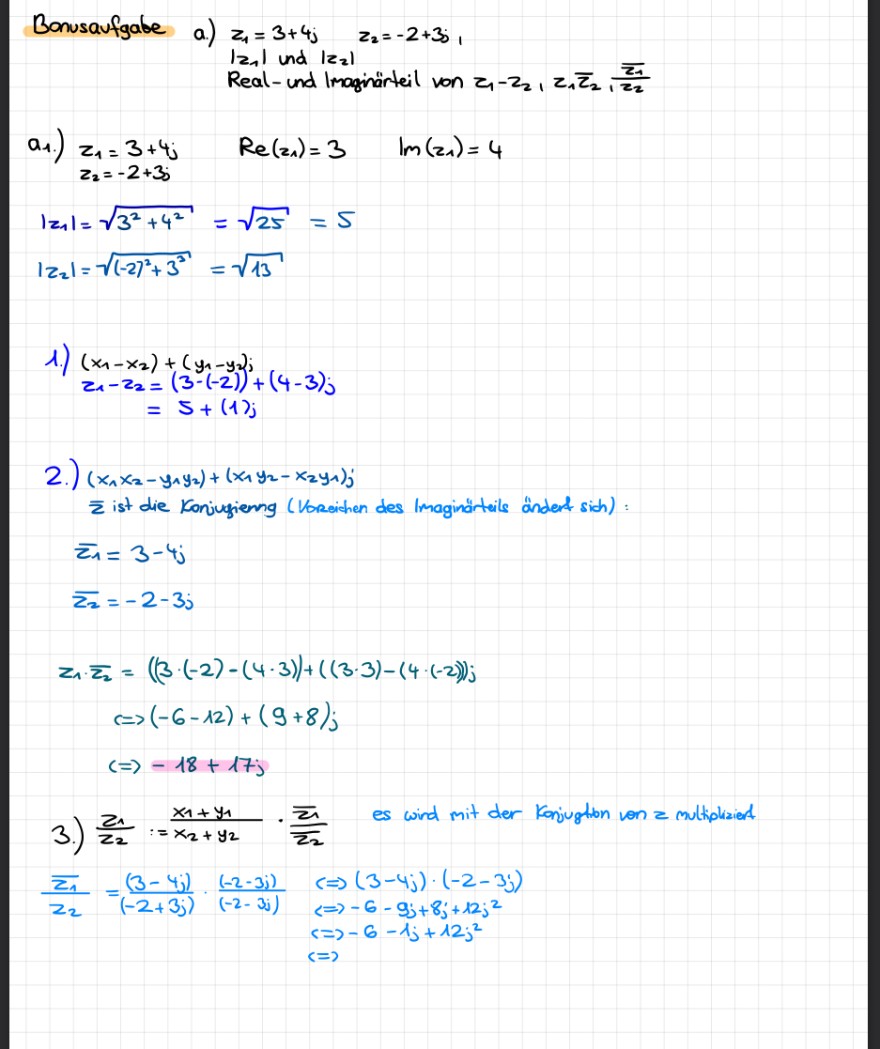 Bonusaufgabe a.) z₁ = 3+4j z₂ = -2+3j ,
|z₁| und |z₂|
Real- und Imaginärteil von z₁-z₂ , z₁z̅₂ , z̅₁/z₂
a₁.) z₁ = 3+4j Re(z₁) = 3 Im(z₁) = 4
z₂ = -2+3j
|z₁| = √(3² + 4²) = √25 = 5
|z₂| = √((-2)² + 3³) = √13
1.) (x₁-x₂) + (y₁-y₂)j
z₁-z₂ = (3-(-2)) + (4-3)j
= 5 + (1)j
2.) (x₁x₂ - y₁y₂) + (x₁y₂ - x₂y₁)j
z̅ ist die Konjugierung (Vorzeichen des Imaginärteils ändert sich) :
z̅₁ = 3-4j
z̅₂ = -2-3j
z₁·z̅₂ = ((3·(-2) - (4·3)) + ((3·3) - (4·(-2)))j
<=> (-6-12) + (9+8)j
<=> -18 + 17j
3.) z₁/z₂ := x₁+y₁/x₂+y₂ · z̅₁/z̅₂ es wird mit der Konjugtion von z multipliziert
z̅₁/z₂ = (3-4j)/(-2+3j) · (-2-3j)/(-2-3j) <=> (3-4j)·(-2-3j)
<=> -6 - 9j + 8j + 12j²
<=> -6 - 1j + 12j²
<=>